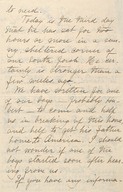 to need.
Today is the third day
that he has sat for two
hours or more in a sun-
ny sheltered corner of
our south porch. He cer-
tainly is stronger than a
few weeks ago.
We have written for one
of our boys - probably
to come and help
us in breaking up this home
and help to get his father
home to America. I should
not wonder if one of the
boys started soon after hear-
ing from us.
If you have any informa-